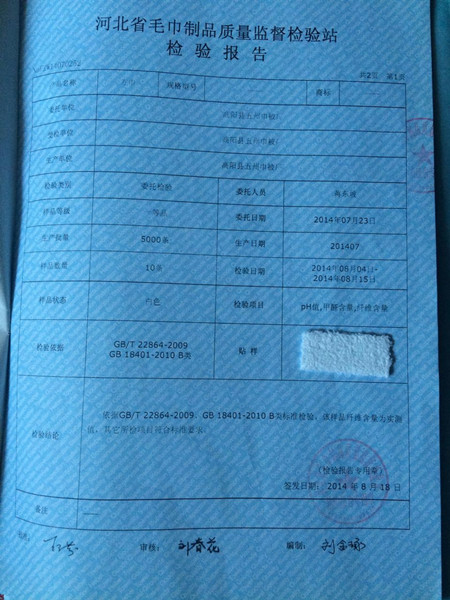 河北省毛巾制品质量监督检验站
检验报告
共2页 第1页
产品名称 毛巾 规格型号 商标
委托单位 高阳县五州巾被厂
受检单位 高阳县五州巾被厂
生产单位 高阳县五州巾被厂
检验类别 委托检验 委托人员
样品等级 一等品 委托日期 2014年07月23日
生产批量 5000条 生产日期 201407
样品数量 10条 检验日期 2014年08月04日-
2014年08月15日
样品状态 白色 检验项目 pH值,甲醛含量,纤维含量
检验依据 GB/T 22864-2009
GB 18401-2010 B类 贴样
检验结论 依据GB/T 22864-2009、GB 18401-2010 B类标准检验，该样品纤维含量为实测
值，其它所检项目符合标准要求。
(检验报告专用章)
签发日期: 2014 年 8 月 18 日
备注 ——
批准: 审核: 刘春花 编制: